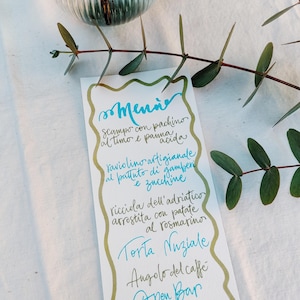 Menù
scampo con pachino
al timo e panna
acida
raviolino artigianale
al battuto di gamberi
e zucchine
ricciola dell'adriatico
arrestita con patate
al rosmarino
Torta Nuziale
Angolo del caffè
Open Bar